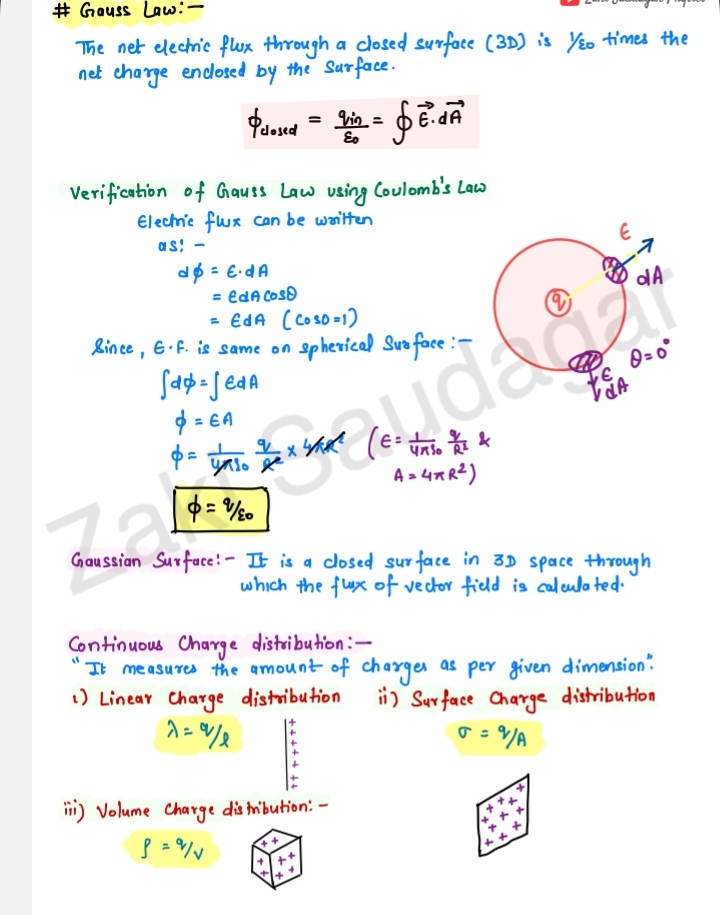 # Gauss Law:-
The net electric flux through a closed surface (3D) is 1/ε0 times the
net charge enclosed by the surface.
ϕclosed = qin/ε0 = ∮ E⃗.dA⃗
Verification of Gauss Law using Coulomb's Law
Electric flux can be written
as: -
dϕ = E.dA
= EdA cosθ
= EdA (cos0=1)
Since, E.F. is same on spherical Surface :-
∫dϕ = ∫EdA
ϕ = EA
ϕ = 1/4πε0 q/R² × 4πR² (E = 1/4πε0 q/R² &
A = 4πR²)
ϕ = q/ε0
E
dA
q
θ=0°
E
dA
Gaussian Surface:- It is a closed surface in 3D space through
which the flux of vector field is calculated.
Continuous Charge distribution:-
"It measures the amount of charges as per given dimension".
i) Linear Charge distribution ii) Surface Charge distribution
λ = q/l
σ = q/A
iii) Volume Charge distribution: -
ρ = q/V
Zaki Saudagar